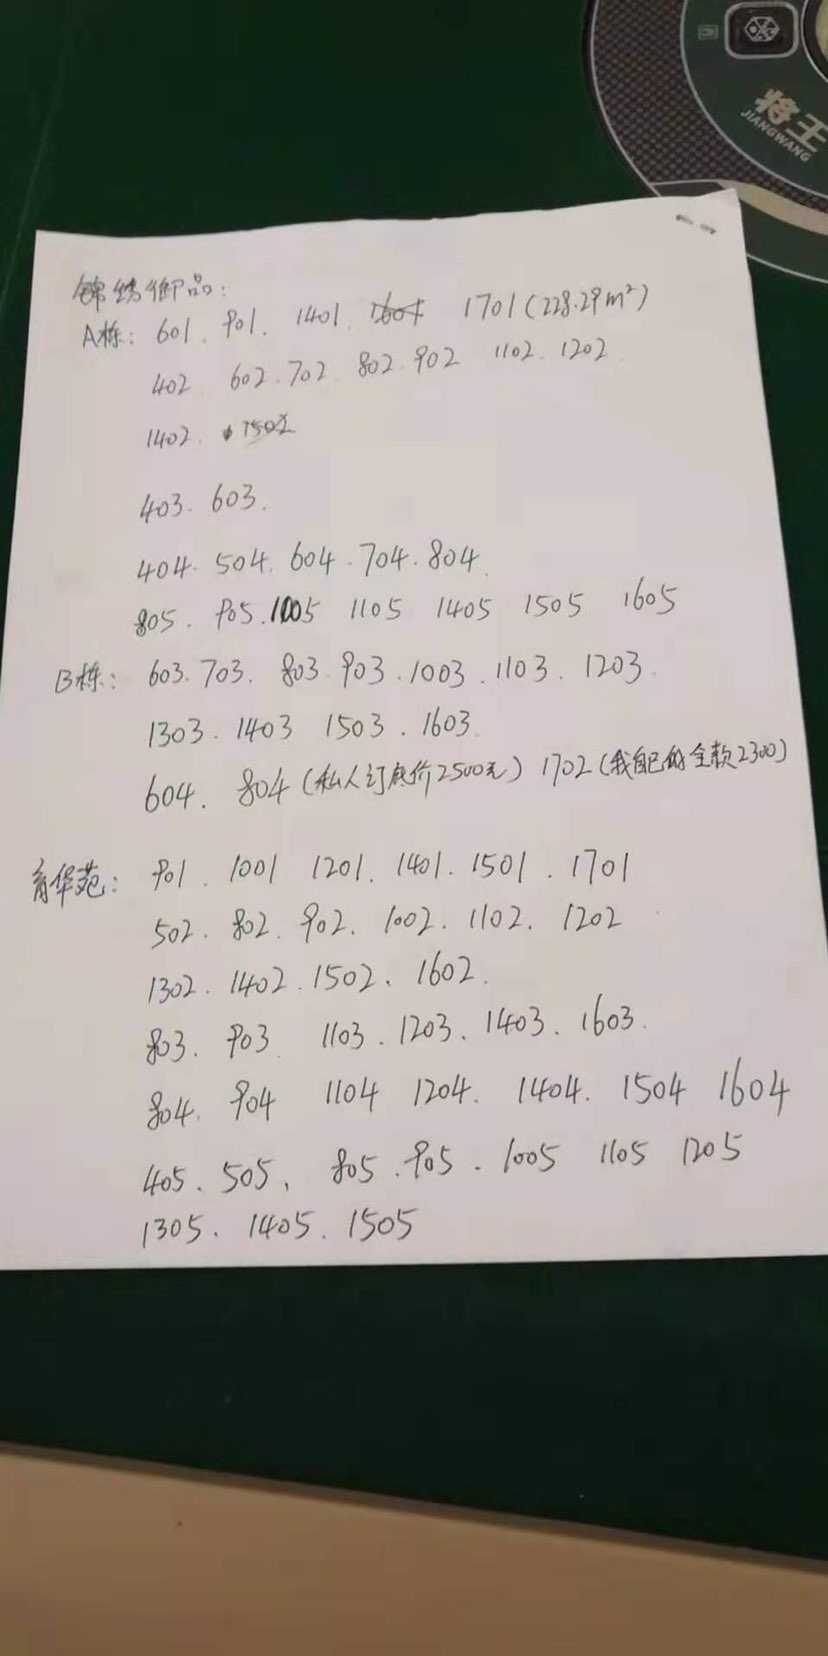 将王
JIANGWANG
锦绣御品：
A栋：601. 901. 1401. 1701（228.29m²）
402 602.702 802.902 1102.1202
1402.
403.603.
404.504.604.704.804.
805.905.1005 1105 1405 1505 1605
B栋：603.703.803.903.1003.1103.1203.
1303.1403 1503.1603.
604. 804（私人订底价2500元）1702（我自己的全款2300）
育华苑：901.1001 1201.1401.1501.1701
502.802.902.1002.1102.1202
1302.1402.1502、1602.
803.903 1103.1203、1403.1603.
804.904 1104 1204.1404.1504 1604
405、505、805.905.1005 1105 1205
1305.1405.1505